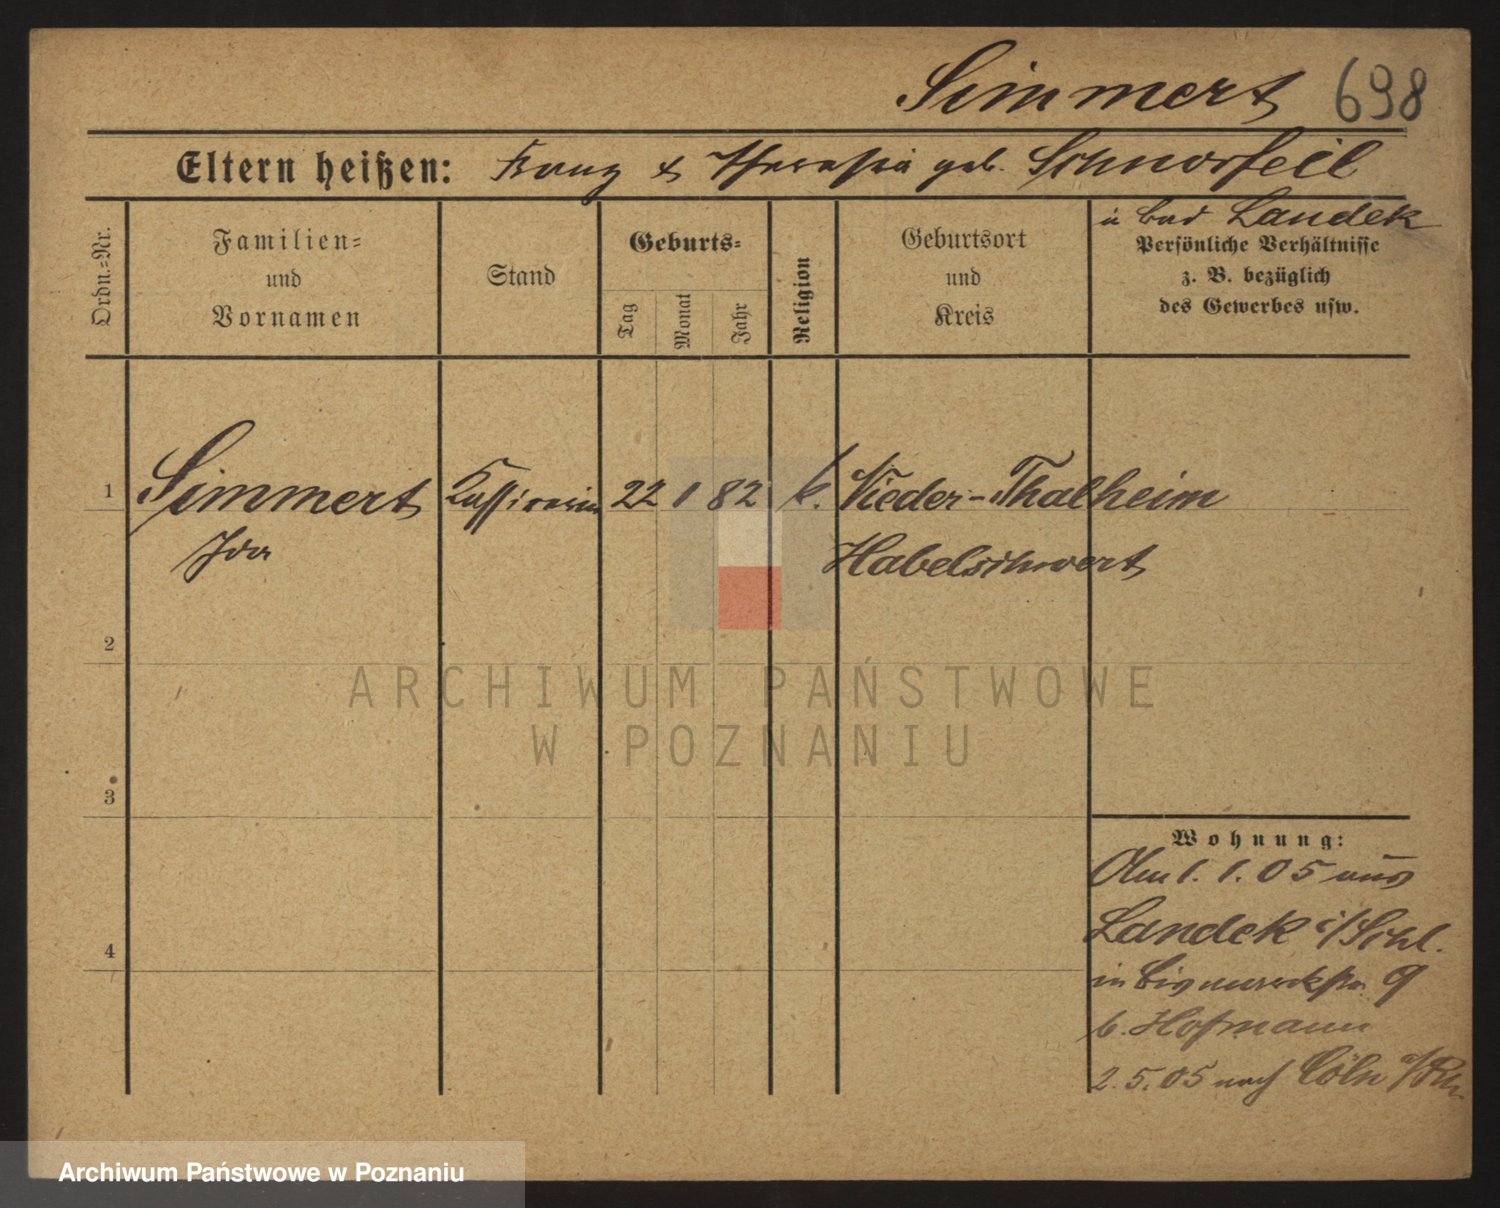 Simmert 698
Eltern heißen: Franz & Theresia geb. Schnorfeil
in Bad Landek
Ordn.-Nr.
Familien-
und
Vornamen
Stand
Geburts-
Tag
Monat
Jahr
Religion
Geburtsort
und
Kreis
Persönliche Verhältnisse
z. B. bezüglich
des Gewerbes usw.
1 Simmert Kassirerin 22 1 82 k. Nieder-Thalheim
Ida Habelschwert
2
3
4
Wohnung:
Am 1. 1. 05 aus
Landek i/Schl.
in Bismarckstr. 9
b. Hofmann
2. 5. 05 nach Cöln a/Rh.
ARCHIWUM PAŃSTWOWE
W POZNANIU
Archiwum Państwowe w Poznaniu